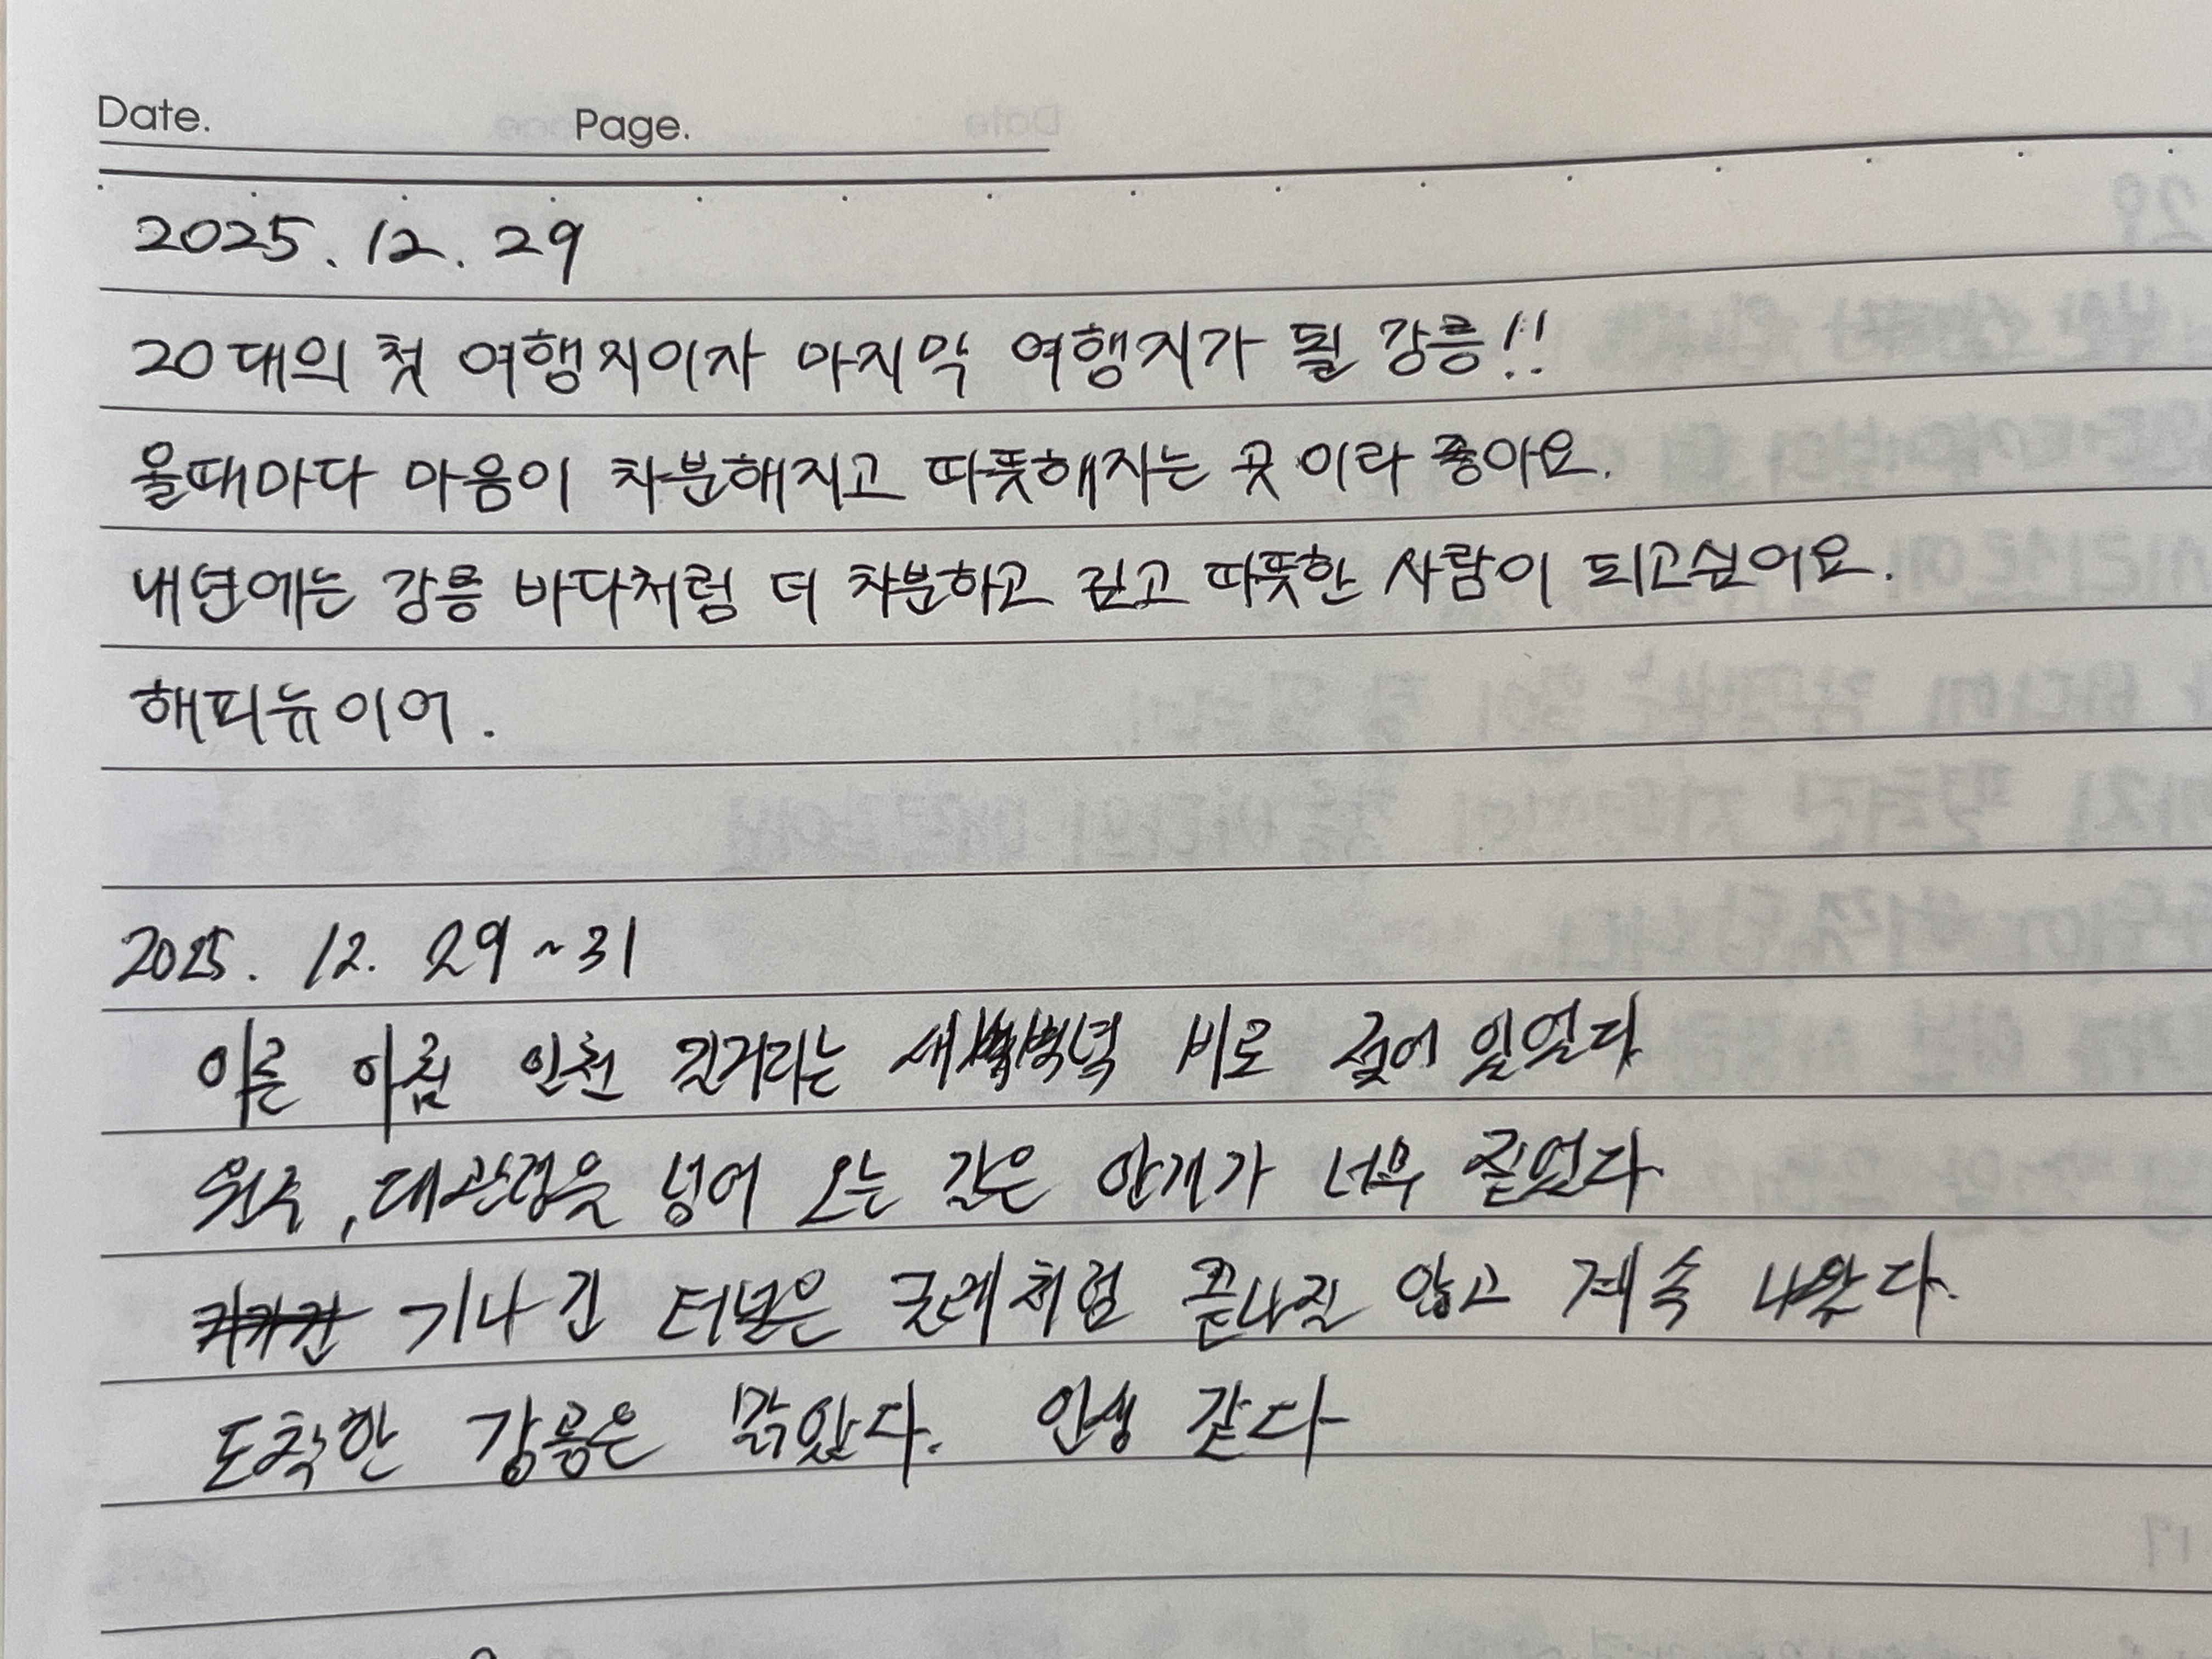 Date. Page.
2025. 12. 29
20대의 첫 여행지이자 마지막 여행지가 될 강릉!!
올때마다 마음이 차분해지고 따뜻해지는 곳이라 좋아요.
내년에는 강릉 바다처럼 더 차분하고 깊고 따뜻한 사람이 되고싶어요.
해피뉴이어.
2025. 12. 29 ~ 31
이른 아침 인천 길거리는 새벽녘 비로 젖어 있었다
원주, 대관령을 넘어 오는 길은 안개가 너무 짙었다
기나긴 터널은 굴레처럼 끝나질 않고 계속 나왔다.
도착한 강릉은 맑았다. 인생 같다